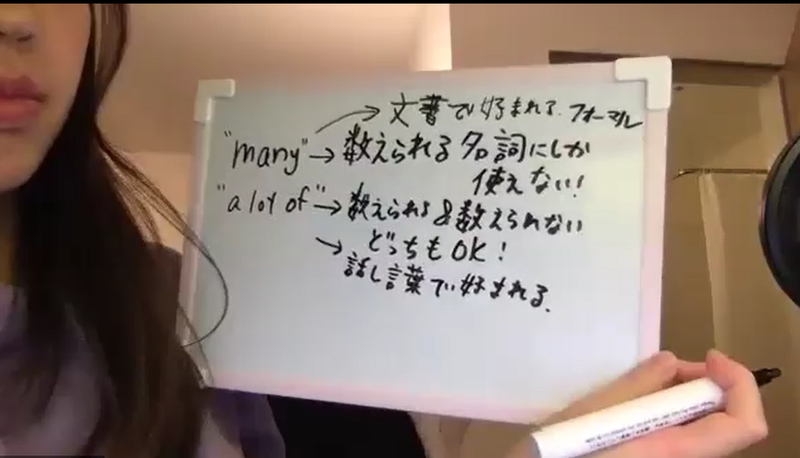 → 文書で好まれる. フォーマル
"many" → 数えられる名詞にしか
使えない!
"a lot of" → 数えられる&数えられない
どっちもOK!
→ 話し言葉で好まれる.